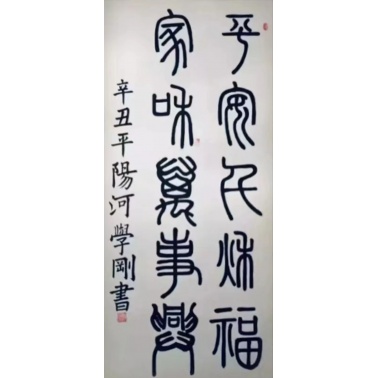 平安福
家和萬事興
辛丑平陽河學剛書